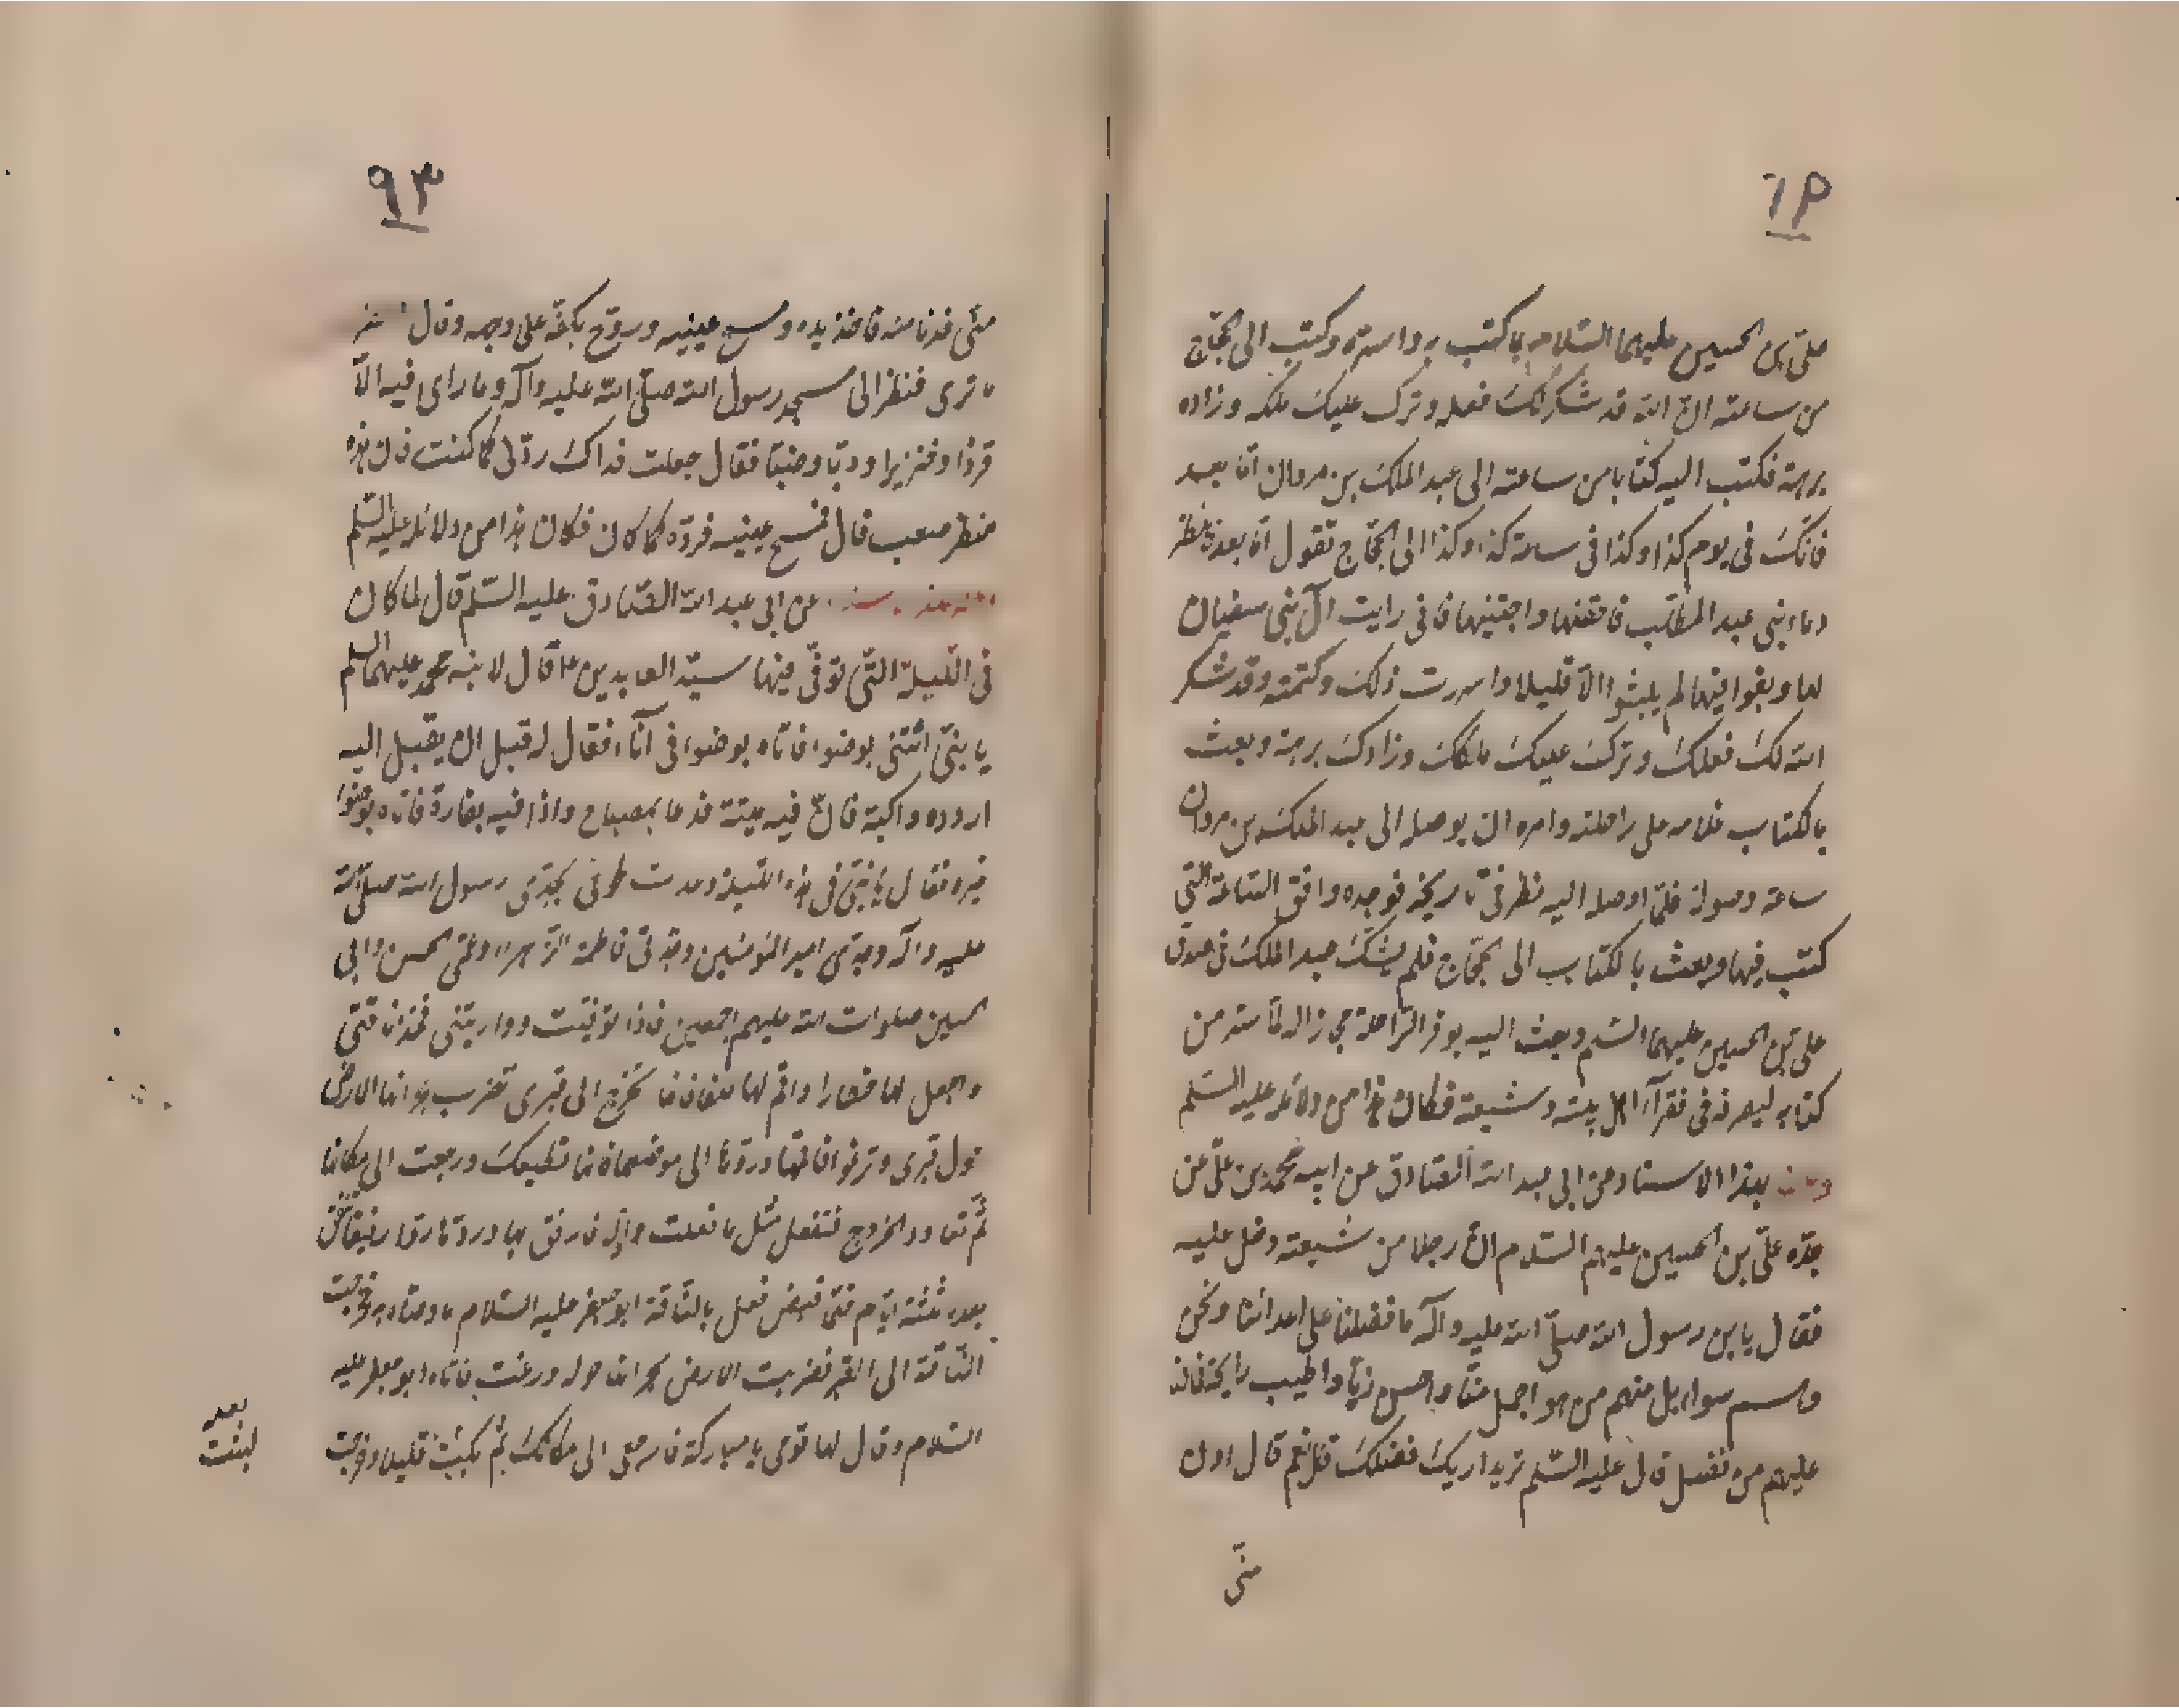 علي بن الحسين عليهما السلام بما كتب به واسره وكتب الى الحجاج
من ساعته ان الله قد شكر لك فعله وترك عليك ملكه وزاده
برهة فكتب اليه كتابا من ساعته الى عبد الملك بن مروان اما بعد
فانك في يوم كذا وكذا في ساعة كذا وكذا الى الحجاج تقول اما بعد فانظر
دماء بني عبد المطلب فاحقنها واجتنبها فاني رايت آل بني سفيان
لما ولغوا فيها لم يلبثوا الا قليلا واسررت ذلك وكتمته وقد شكر
الله لك فعلك وترك عليك ملكك وزادك برهة وبعث
بالكتاب غلامه على راحلته وامره ان يوصله الى عبد الملك بن مروان
ساعة وصوله فلما اوصله اليه نظر في تاريخه فوجده وافق الساعة التي
كتب فيها وبعث بالكتاب الى الحجاج فلم يشك عبد الملك في صدق
علي بن الحسين عليهما السلم وبعث اليه بوقر الراحلة من
كتابه ليصرفه في فقرآء اهل بيته وشيعته فكان هذا من دلائله عليه السلم
بهذا الاسناد عن ابي عبد الله الصادق عن ابيه محمد بن علي عن
جده علي بن الحسين عليهم السلام ان رجلا من شيعته دخل عليه
فقال يابن رسول الله صلى الله عليه وآله ما فضلنا على اعدائنا ونحن
وهم سواء بل منهم من هو اجمل منا واحسن زيا واطيب رايحة فمالنا
عليهم من فضل قال عليه السلم تريد اريك فضلك قال نعم قال ادن
مني
٩٣
مني فدنا منه فاخذ يده ومسح عينيه وروح بكفه على وجهه وقال انظر
ما ترى فنظر الى مسجد رسول الله صلى الله عليه وآله وما راى فيه الا
قردا وخنزيرا ودبا وضبا فقال جعلت فداك ردني كما كنت فان هذه
منظر صعب قال فمسح عينيه فرده كما كان فكان هذا من دلائله عليه السلم
عن ابي عبد الله الصادق عليه السلم قال لما كان
في الليلة التي توفى فيها سيد العابدين ع قال لابنه محمد عليهما السلم
يا بني ائتني بوضوء فاتاه بوضوء في آناء فقال له قبل ان يقبل اليه
اردده واكبه فان فيه ميتة فدعا بمصباح واذا فيه بفارة فاتاه بوضوء
غيره فقال يا بني في هذه الليلة وعدت لحوقي بجدي رسول الله صلى الله
عليه وآله وجدي امير المؤمنين وجدتي فاطمة الزهراء وعمي الحسن وابي
الحسين صلوات الله عليهم اجمعين فاذا توفيت وواريتني فخذ ناقتي
واجعل لها حظارا واقم لها علفا فانها تخرج الى قبري تضرب بجرانها الارض
حول قبري وترغوا فاتها وردها الى موضعها فانها تطيعك ورجعت الى مكانها
ثم تعاود الخروج فتفعل مثل ما فعلت فارفق بها وردها ردا رفيقا
بعد ثلثة ايام فلما قبض فعل بالناقة ابو جعفر عليه السلام ما وصاه به فخرجت
الناقة الى القبر فضربت الارض بجرانها حوله ورغت فاتاه ابو جعفر عليه
السلام وقال لها قومي يا مباركة فارجعي الى مكانك ثم مكثت قليلا وخرجت
بعد
لبثت